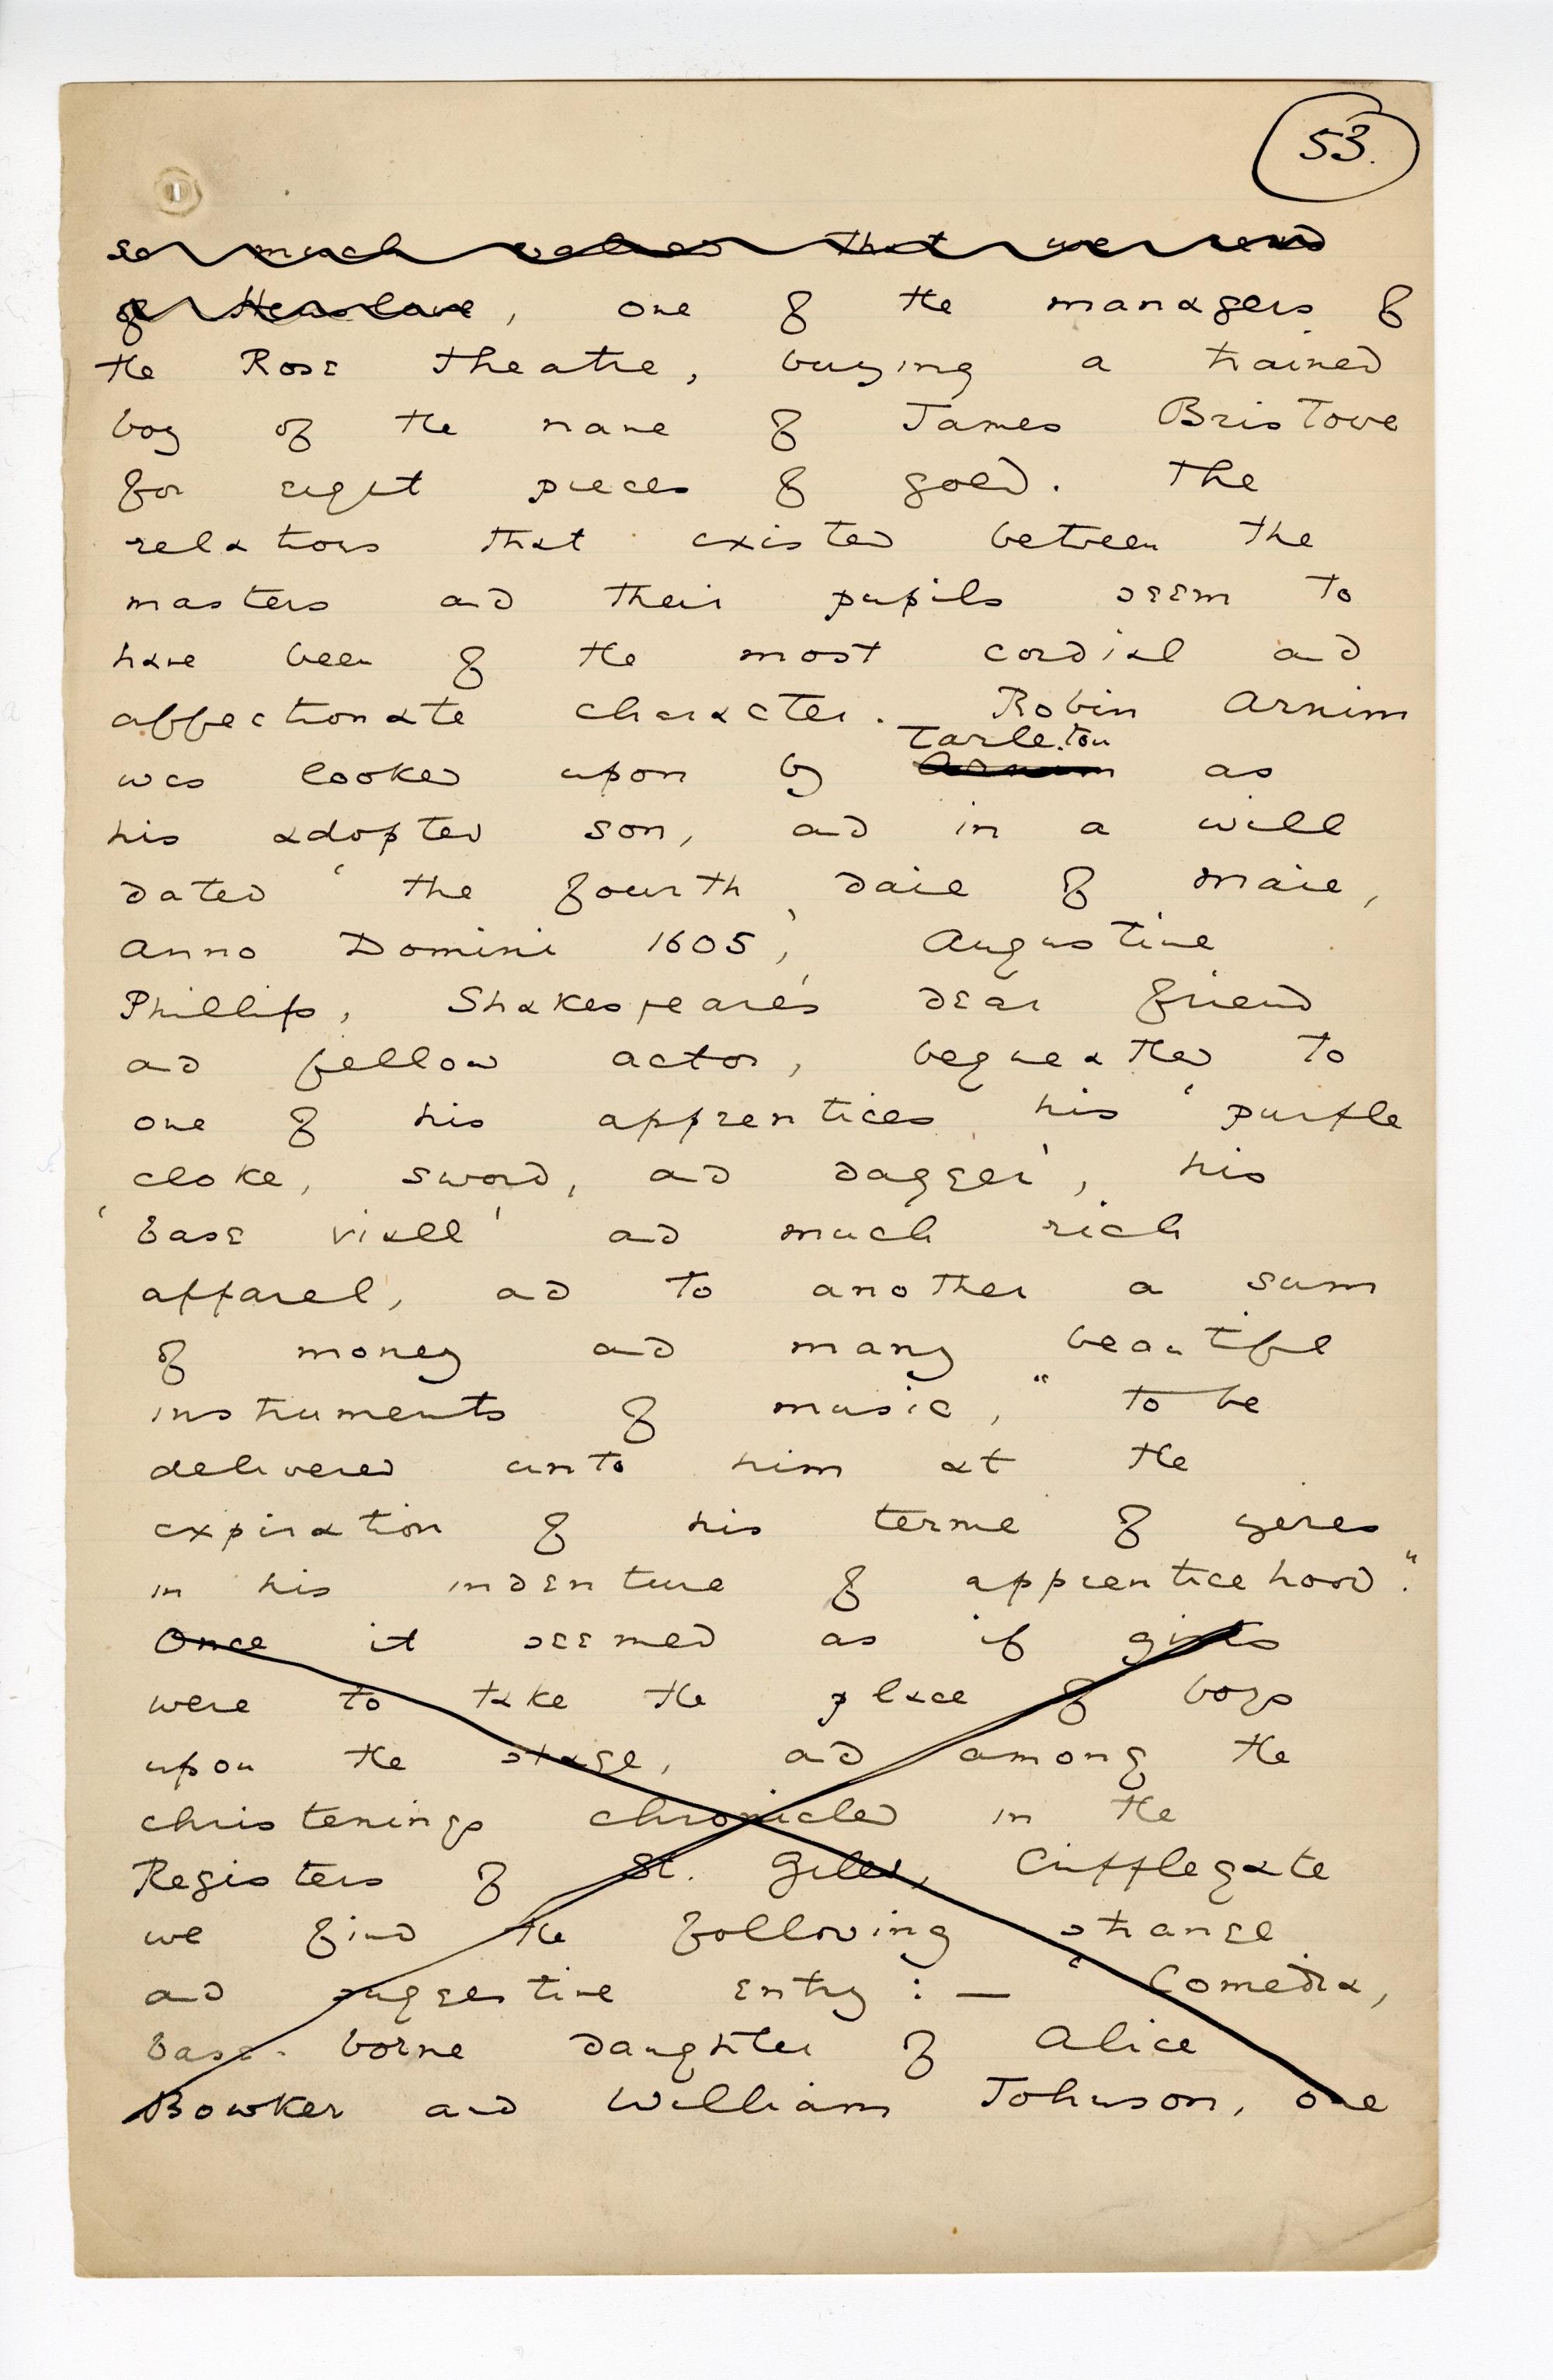 53.
so much valued that we read
of Henslowe, one of the managers of
the Rose Theatre, buying a trained
boy of the name of James Bristowe
for eight pieces of gold. The
relations that existed between the
masters and their pupils seem to
have been of the most cordial and
affectionate character. Robin Arnim
Tarleton
was looked upon by Arnim as
his adopted son, and in a will
dated 'the fourth daie of Maie,
Anno Domini 1605,' Augustine
Phillips, Shakespeare's dear friend
and fellow actor, bequeathed to
one of his apprentices his 'purple
cloke, sword, and dagger', his
'base viall' and much rich
apparel, and to another a sum
of money and many beautiful
instruments of music, "to be
delivered unto him at the
expiration of his terme of yeres
in his indenture of apprenticehood".
Once it seemed as if girls
were to take the place of boys
upon the stage, and among the
christenings chronicled in the
Registers of St. Giles, Cripplegate
we find the following strange
and suggestive entry: — "Comedia,
base-borne daughter of Alice
Bowker and William Johnson, one